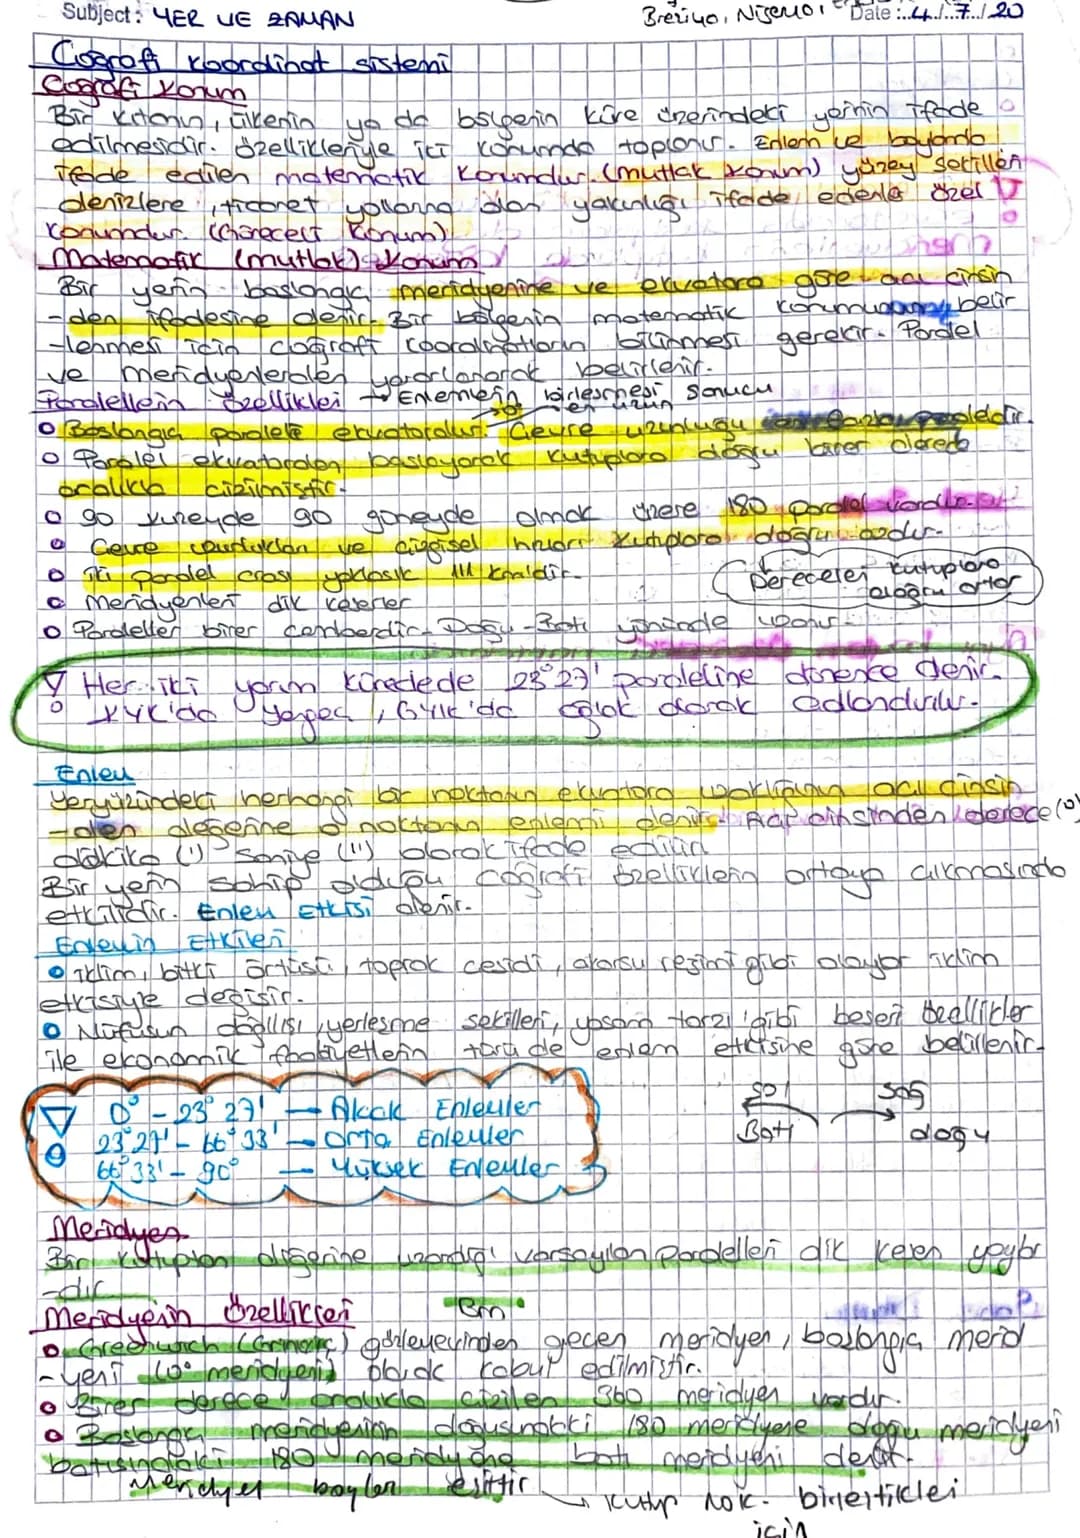 Subject: YER VE ZAMAN
Date: 4/7/20
Coğrafi koordinat sistemi
Coğrafi Konum
Bir kıtanın, ülkenin ya da bölgenin küre üzerindeki yerinin ifade
edilmesidir. Özellikleriyle iki konumda toplanır. Enlem ve boylamla
ifade edilen matematik konumdur. (mutlak konum) yüzey şekilleri
denizlere, ticaret yollarına olan yakınlığı ifade edenle özel
konumdur. (Göreceli konum)
Matematik (mutlak) Konum
Bir yerin başlangıç meridyenine ve ekvatora göre açı cinsin
-den ifadesine denir. Bir bölgenin matematik konumunun belir
-lenmesi için coğrafi koordinatların bilinmesi gerekir. Paralel
ve meridyenlerden yararlanarak belirlenir.
Paralellerin Özellikleri → Enlemlerin birleşmesi sonucu
en uzun
o Başlangıç paraleli ekvatordur. Çevre uzunluğu en fazla paraleldir.
o Paralel ekvatordan başlayarak kutuplara doğru birer derece
aralıkla çizilmiştir.
o 90 kuzeyde 90 güneyde olmak üzere 180 paralel vardır.
o Çevre uzunlukları ve çizgisel hızları kutuplara doğru azalır.
o İki paralel arası yaklaşık 111 km'dir.
Dereceleri kutuplara
doğru artar
o Meridyenleri dik keserler
o Paraleller birer çemberdir. Doğu-Batı yönünde uzanır.
! Her iki yarım kürede de 23°27' paraleline dönence denir.
KYK'da yengeç, GYK'da oğlak olarak adlandırılır.
Enlem
Yeryüzündeki herhangi bir noktanın ekvatora uzaklığının açı cinsin
-den değerine o noktanın enlemi denir. Açı cinsinden derece (°)
dakika (') saniye ('') olarak ifade edilir
Bir yerin sahip olduğu coğrafi özelliklerin ortaya çıkmasında
etkilidir. Enlem Etkisi denir.
Enlemin Etkileri
o İklim, bitki örtüsü, toprak çeşidi, akarsu rejimi gibi olaylar iklim
etkisiyle değişir.
o Nüfusun dağılışı, yerleşme şekilleri, yaşam tarzı gibi beşeri özellikler
ile ekonomik faaliyetlerin türü de enlem etkisine göre belirlenir.
! 0° - 23°27' → Alçak Enlemler
23°27' - 66°33' → Orta Enlemler
66°33' - 90° → Yüksek Enlemler
sol sağ
Batı doğu
Meridyen
Bir kutuptan diğerine uzandığı varsayılan paralelleri dik kesen yaylar
-dır
Meridyenin Özellikleri Bm
o Greenwich (Grinviç) gözlemevinden geçen meridyen, başlangıç merid
-yeni (0° meridyeni) olarak kabul edilmiştir.
o Birer derece aralıkla çizilen 360 meridyen vardır.
o Başlangıç meridyeninin doğusundaki 180 meridyene doğu meridyeni
batısındaki 180 meridyene batı meridyeni denir.
Meridyen boyları eşittir → kutup nok. birleştikleri
için